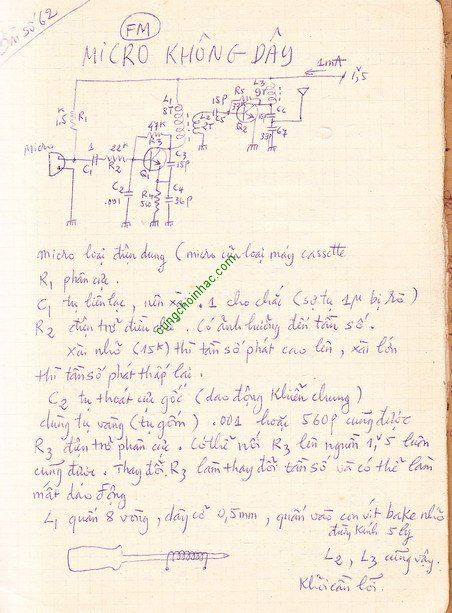 Bản số 62
FM
MICRO KHÔNG DÂY
1mA
1,5
K
1.5
R1
L1
8T
47K
R3
micro
1
C1
22K
R2
C2
.001
Q1
C3
15P
R4
C4
36P
L2
2T
15P
C5
R5
Q2
L3
9T
C6
C7
micro loại điện dung (micro của loại máy cassette
R1 phân cực.
C1 tụ liên lạc, nên xài .1 cho chắc (sợ tụ 1μ bị rò)
R2 điện trở điều . Có ảnh hưởng đến tần số.
xài nhỏ (15K) thì tần số phát cao lên, xài lớn
thì tần số phát thấp lại.
C2 tụ thoát cực gốc (dao động khiển chung)
dùng tụ vàng (tụ gốm) .001 hoặc 560P cũng được
R3 điện trở phân cực. Có thể nối R3 lên nguồn 1,5 luôn
cũng được. Thay đổi R3 làm thay đổi tần số và có thể làm
mất dao động.
L1 quấn 8 vòng, dây cỡ 0,5mm, quấn vào con vít bake nhỏ
đường kính 5 ly
L2, L3 cũng vậy.
Khỏi cần lõi.
cungchoinhac.com